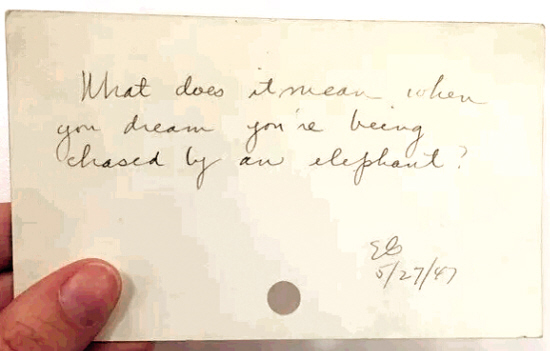 What does it mean when
you dream you're being
chased by an elephant?
EG
5/27/47